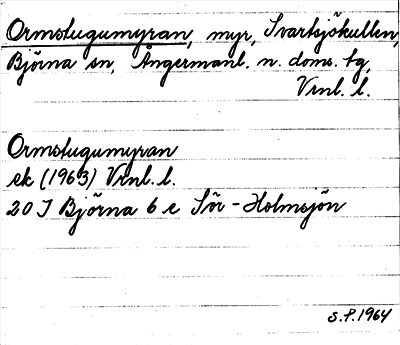 Ormstugumyran, myr, Svartsjökullen,
Björna sn, Ångermanl. n. doms. tg,
Vrnl. l.
Ormstugumyran
ek (1963) Vrnl. l.
20 J Björna 6 c Sör-Holmsjön
S.P. 1964